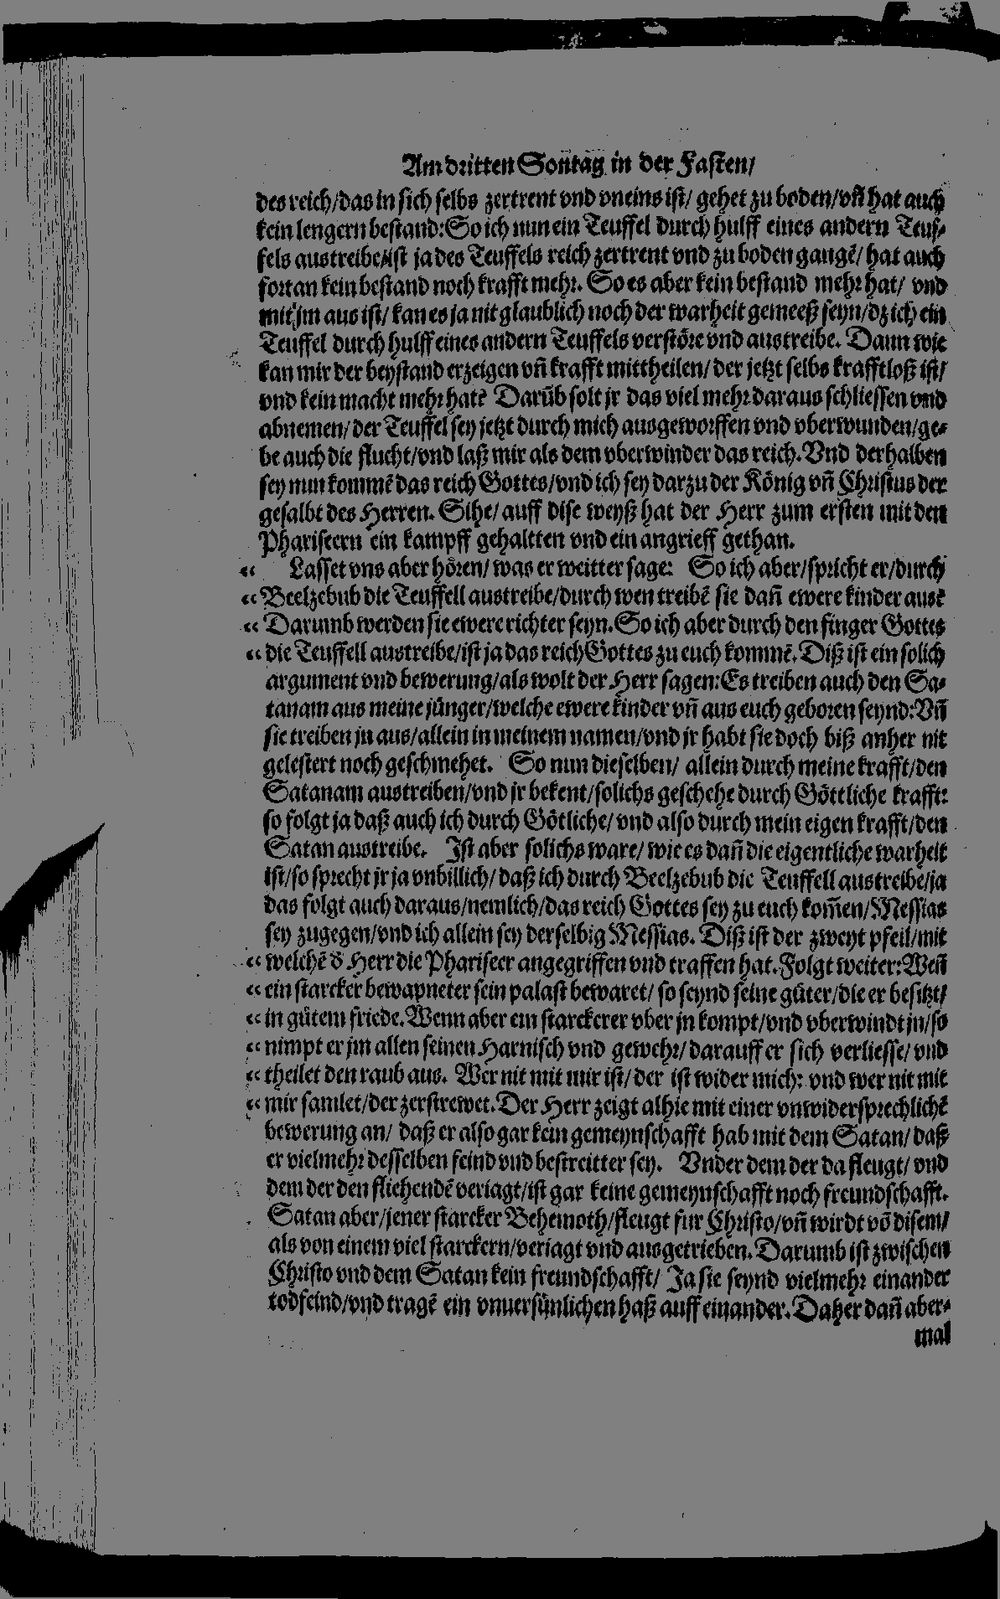 Am dritten Sontag in der Fasten/
des reich/das in sich selbs zertrent vnd vneins ist/ gehet zu boden/vñ hat auch
kein lengern bestand: So ich nun ein Teuffel durch hulff eines andern Teuf-
fels austreibe/ist ja des Teuffels reich zertrent vnd zu boden gangẽ/ hat auch
fortan kein bestand noch krafft mehr. So es aber kein bestand mehr hat/ vnd
mit jm aus ist/ kan es ja nit glaublich noch der warheit gemeeß seyn/dz ich ein
Teuffel durch hulff eines andern Teuffels verstöre vnd austreibe. Dann wie
kan mir der beystand erzeigen vñ krafft mittheilen/ der jetzt selbs krafftloß ist/
vnd kein macht mehr hat? Darũb solt jr das viel mehr daraus schliessen vnd
abnemen/ der Teuffel sey jetzt durch mich ausgeworffen vnd vberwunden/ge-
be auch die flucht/vnd laß mir als dem vberwinder das reich. Vnd derhalben
sey nun kommẽ das reich Gottes/vnd ich sey darzu der König vñ Christus der
gesalbt des Herren. Sihe/ auff dise weyß hat der Herr zum ersten mit den
Phariseern ein kampff gehaltten vnd ein angrieff gethan.
“ Lasset vns aber hören/ was er weitter sage: So ich aber/spricht er/durch
“ Beelzebub die Teuffell austreibe/durch wen treibẽ sie dañ ewere kinder aus?
“ Darumb werden sie ewere richter seyn. So ich aber durch den finger Gottes
“ die Teuffell austreibe/ist ja das reich Gottes zu euch kommẽ. Diß ist ein solich
argument vnd bewerung/als wolt der Herr sagen: Es treiben auch den Sa-
tanam aus meine jünger/welche ewere kinder vñ aus euch geboren seynd: Vñ
sie treiben jn aus/allein in meinem namen/vnd jr habt sie doch biß anher nit
gelestert noch geschmehet. So nun dieselben/ allein durch meine krafft/den
Satanam austreiben/vnd jr bekent/solichs geschehe durch Göttliche krafft:
so folgt ja daß auch ich durch Götliche/ vnd also durch mein eigen krafft/den
Satan austreibe. Ist aber solichs ware/ wie es dañ die eigentliche warheit
ist/so sprecht jr ja vnbillich/ daß ich durch Beelzebub die Teuffell austreibe/ja
das folgt auch daraus/nemlich/das reich Gottes sey zu euch kom̃en/Messias
sey zugegen/vnd ich allein sey derselbig Messias. Diß ist der zweyt pfeil/mit
“ welchẽ d̓ Herr die Phariseer angegriffen vnd traffen hat. Folgt weiter: Weñ
“ ein starcker bewapneter sein palast bewaret/ so seynd seine güter/die er besitzt/
“ in gůtem friede. Wenn aber ein starckerer vber jn kompt/vnd vberwindt jn/so
“ nimpt er jm allen seinen Harnisch vnd gewehr/ darauff er sich verliesse/ vnd
“ theilet den raub aus. Wer nit mit mir ist/ der ist wider mich: vnd wer nit mit
“ mir samlet/der zerstrewet. Der Herr zeigt alhie mit einer vnwidersprechlichẽ
bewerung an/ daß er also gar kein gemeynschafft hab mit dem Satan/ daß
er vielmehr desselben feind vnd bestreitter sey. Vnder dem der da fleugt/ vnd
dem der den fliehendẽ veriagt/ist gar keine gemeynschafft noch freundschafft.
Satan aber/jener starcker Behemoth/fleugt fur Christo/vñ wirdt võ disem/
als von einem viel starckern/veriagt vnd ausgetrieben. Darumb ist zwischen
Christo vnd dem Satan kein freundschafft/ Ja sie seynd vielmehr einander
todfeind/vnd tragẽ ein vnuersünlichen haß auff einander. Daher dañ aber-
mal